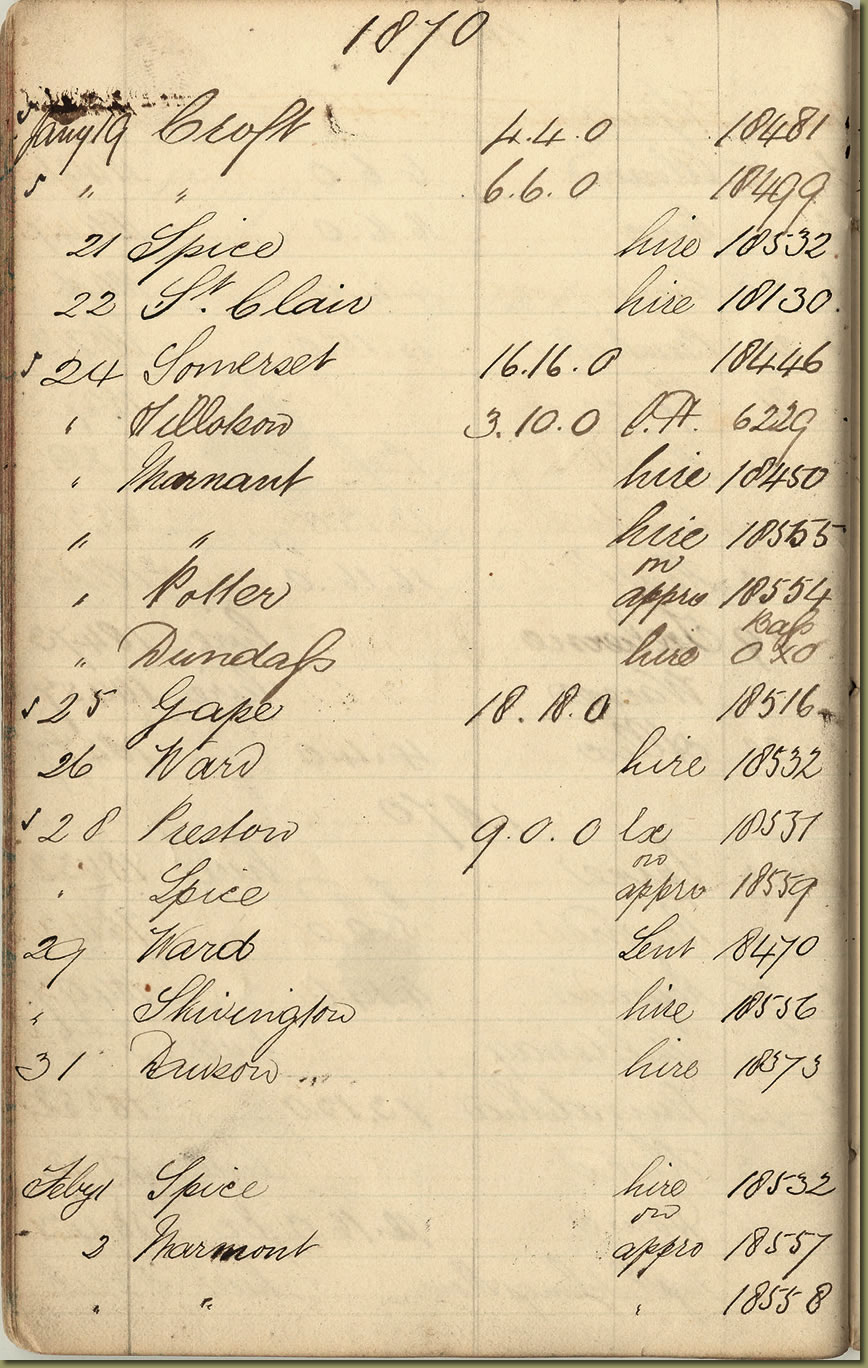 1870
Jany 19 Croft 4.4.0 18481
" " 6.6.0 18499
21 Spice hire 18532
22 St. Clair hire 18130
24 Somerset 16.16.0 18446
" 3.10.0 6229
" hire 18450
" " hire 18555
on
" Potter appro 18554
" Dundass hire
25 Gape 18.18.0 18516
26 Ward hire 18532
28 Preston 9.0.0 Ex 18531
on
" Spice appro 18559
29 Ward Lent 18470
" Skivington hire 18556
31 Dawson hire
Feby 1 Spice hire 18532
on
2 appro 18557
" " " 18558